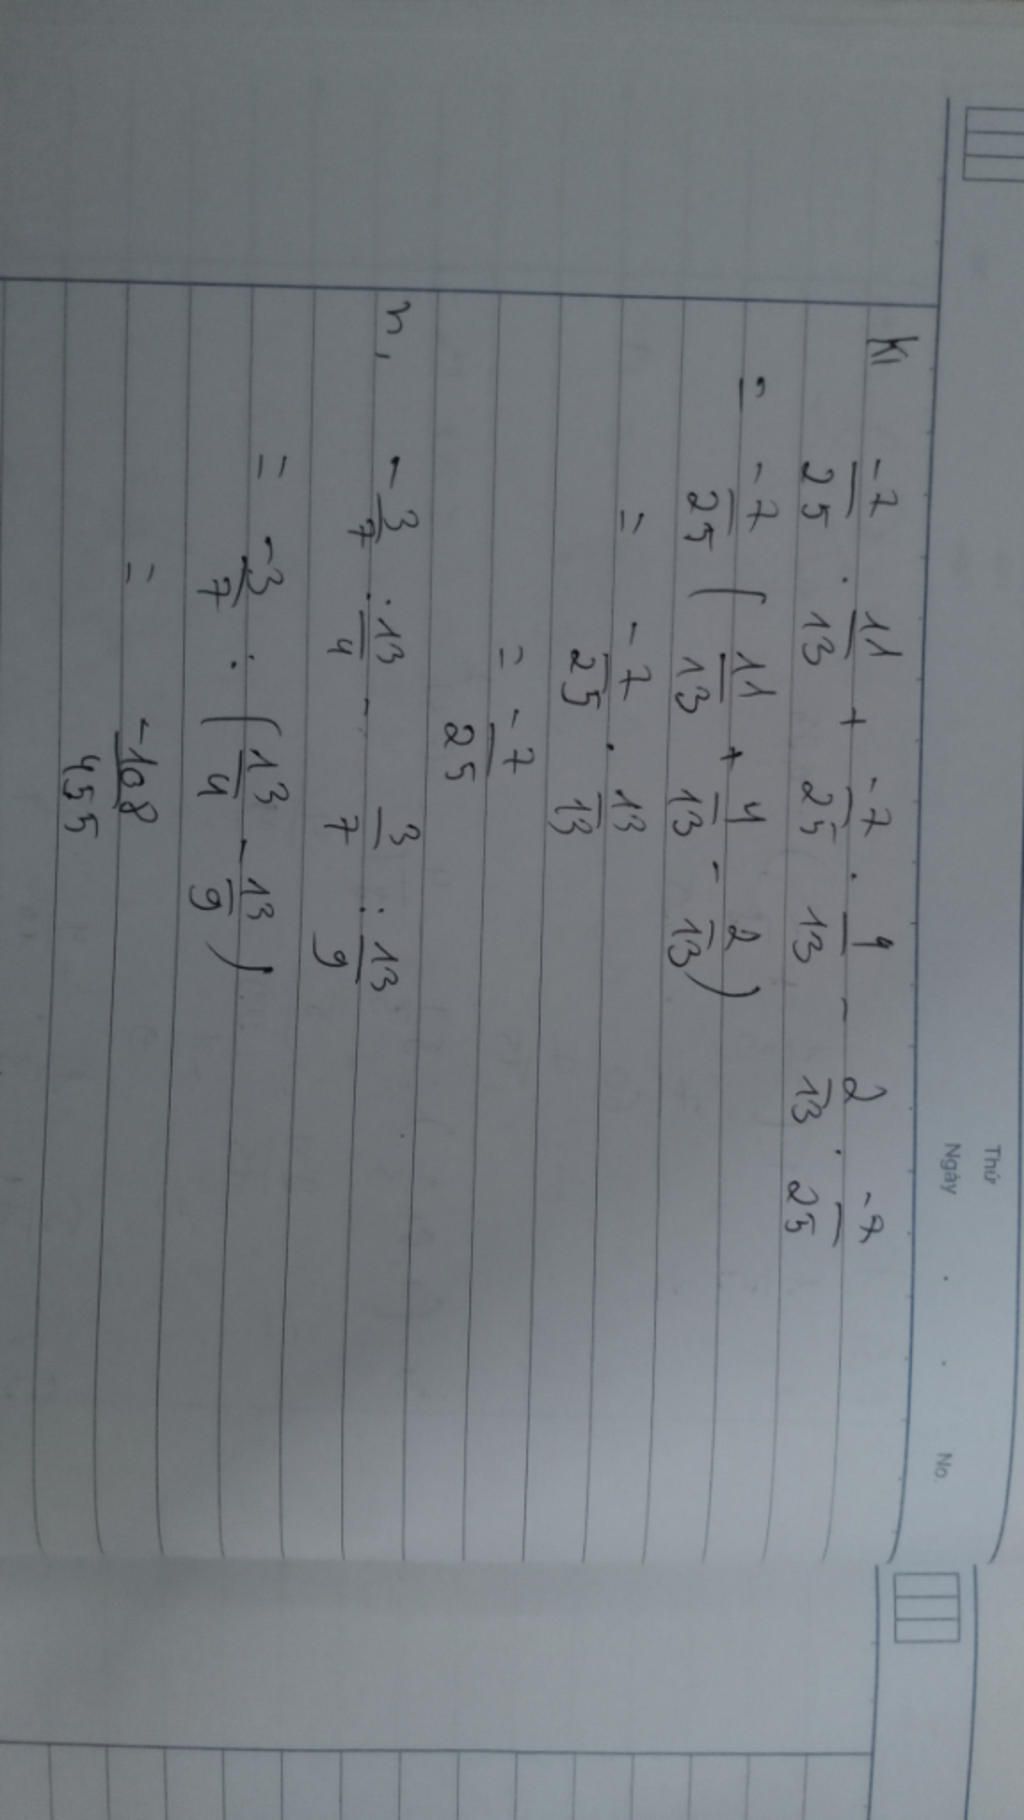 Thứ
Ngày . . No.
k, -7/25 . 11/13 + -7/25 . 4/13 - 2/13 . -7/25
= -7/25 ( 11/13 + 4/13 - 2/13 )
= -7/25 . 13/13
= -7/25
n, -3/7 : 13/4 - 3/7 : 13/9
= -3/7 : ( 13/4 - 13/9 )
= -108/455